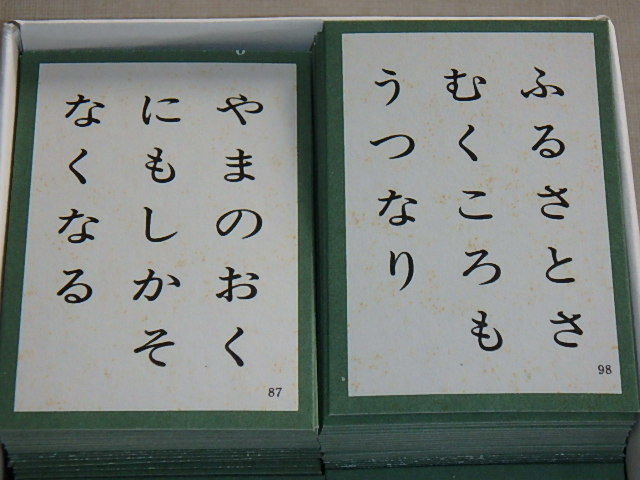 ふるさとさ
むくころも
うつなり
98
やまのおく
にもしかそ
なくなる
87